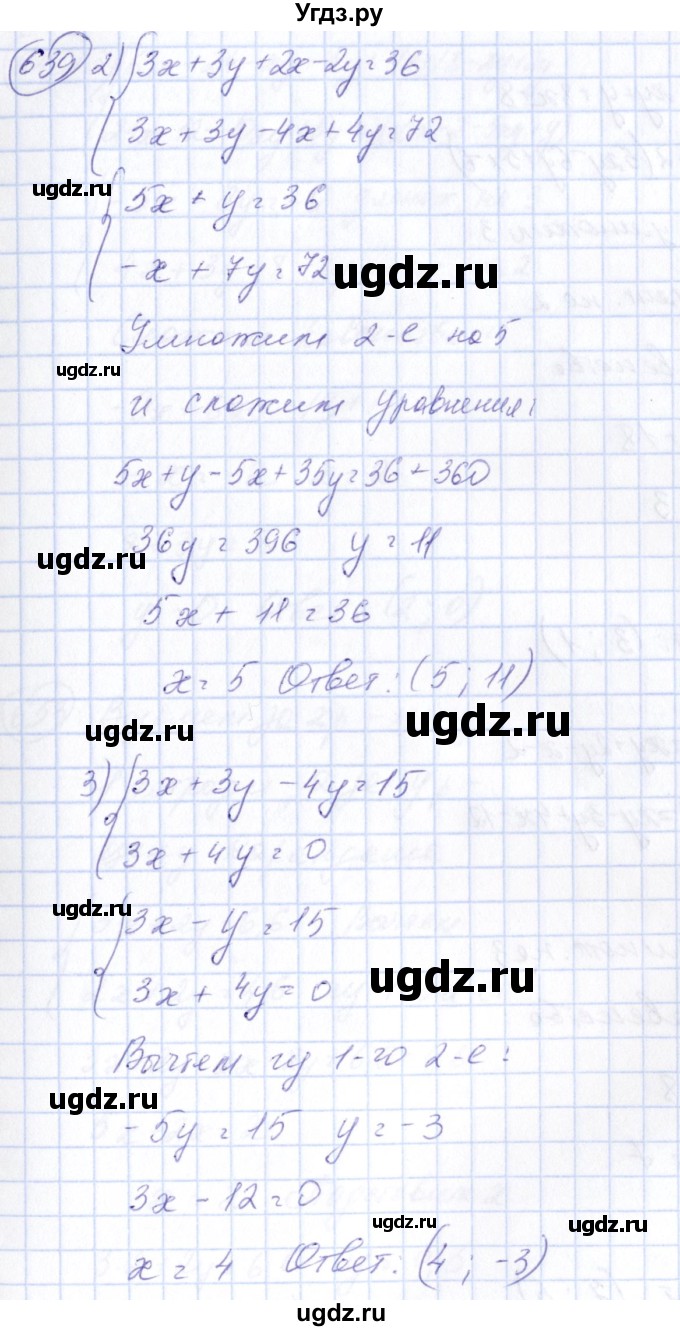 Угдз.ру
639 2) { 3x + 3y + 2x - 2y = 36
3x + 3y - 4x + 4y = 72
ugdz.ru
{ 5x + y = 36
- x + 7y = 72
ugdz.ru
Умножим 2-е на 5
ugdz.ru
и сложим уравнения:
5x + y - 5x + 35y = 36 + 360
36y = 396 y = 11
ugdz.ru
5x + 11 = 36
x = 5 Ответ: (5 ; 11)
ugdz.ru
ugdz.ru
3) { 3x + 3y - 4y = 15
3x + 4y = 0
ugdz.ru
{ 3x - y = 15
ugdz.ru
3x + 4y = 0
Вычтем из 1-го 2-е:
ugdz.ru
- 5y = 15 y = -3
3x - 12 = 0
ugdz.ru
ugdz.ru
x = 4 Ответ: (4 ; -3)
ugdz.ru